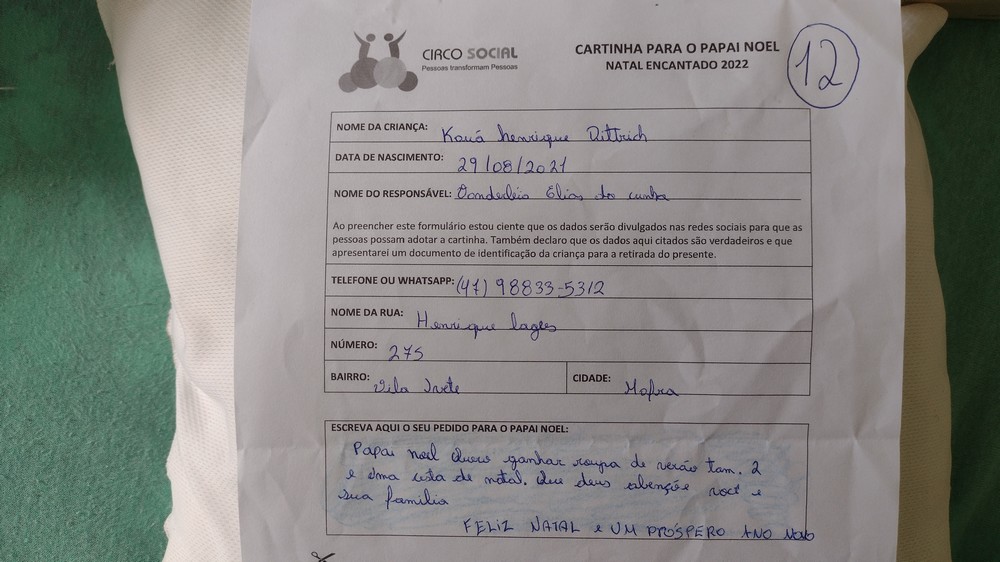 CIRCO SOCIAL
Pessoas transformam Pessoas
CARTINHA PARA O PAPAI NOEL
NATAL ENCANTADO 2022
12
NOME DA CRIANÇA: Kauá henrique Dittrich
DATA DE NASCIMENTO: 29/08/2021
NOME DO RESPONSÁVEL: Vonderléia Elias da cunha
Ao preencher este formulário estou ciente que os dados serão divulgados nas redes sociais para que as
pessoas possam adotar a cartinha. Também declaro que os dados aqui citados são verdadeiros e que
apresentarei um documento de identificação da criança para a retirada do presente.
TELEFONE OU WHATSAPP: (47) 98833-5312
NOME DA RUA: Henrique lages
NÚMERO: 275
BAIRRO: Vila Ivete CIDADE: Mafra
ESCREVA AQUI O SEU PEDIDO PARA O PAPAI NOEL:
Papai noel quero ganhar roupa de verão tam. 2
e uma cesta de natal. Que deus abençõe você e
sua família
FELIZ NATAL e UM PRÓSPERO ANO NOVO